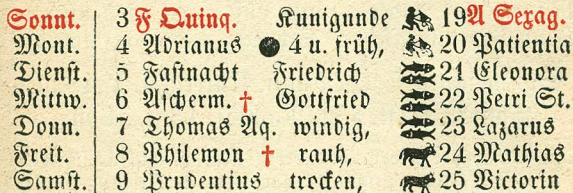 Sonnt. 3 F Quinq. Kunigunde 19 A Sexag.
Mont. 4 Adrianus 4 u. früh, 20 Patientia
Dienst. 5 Fastnacht Friedrich 21 Eleonora
Mittw. 6 Ascherm. † Gottfried 22 Petri St.
Donn. 7 Thomas Aq. windig, 23 Lazarus
Freit. 8 Philemon † rauh, 24 Mathias
Samst. 9 Prudentius trocken, 25 Victorin